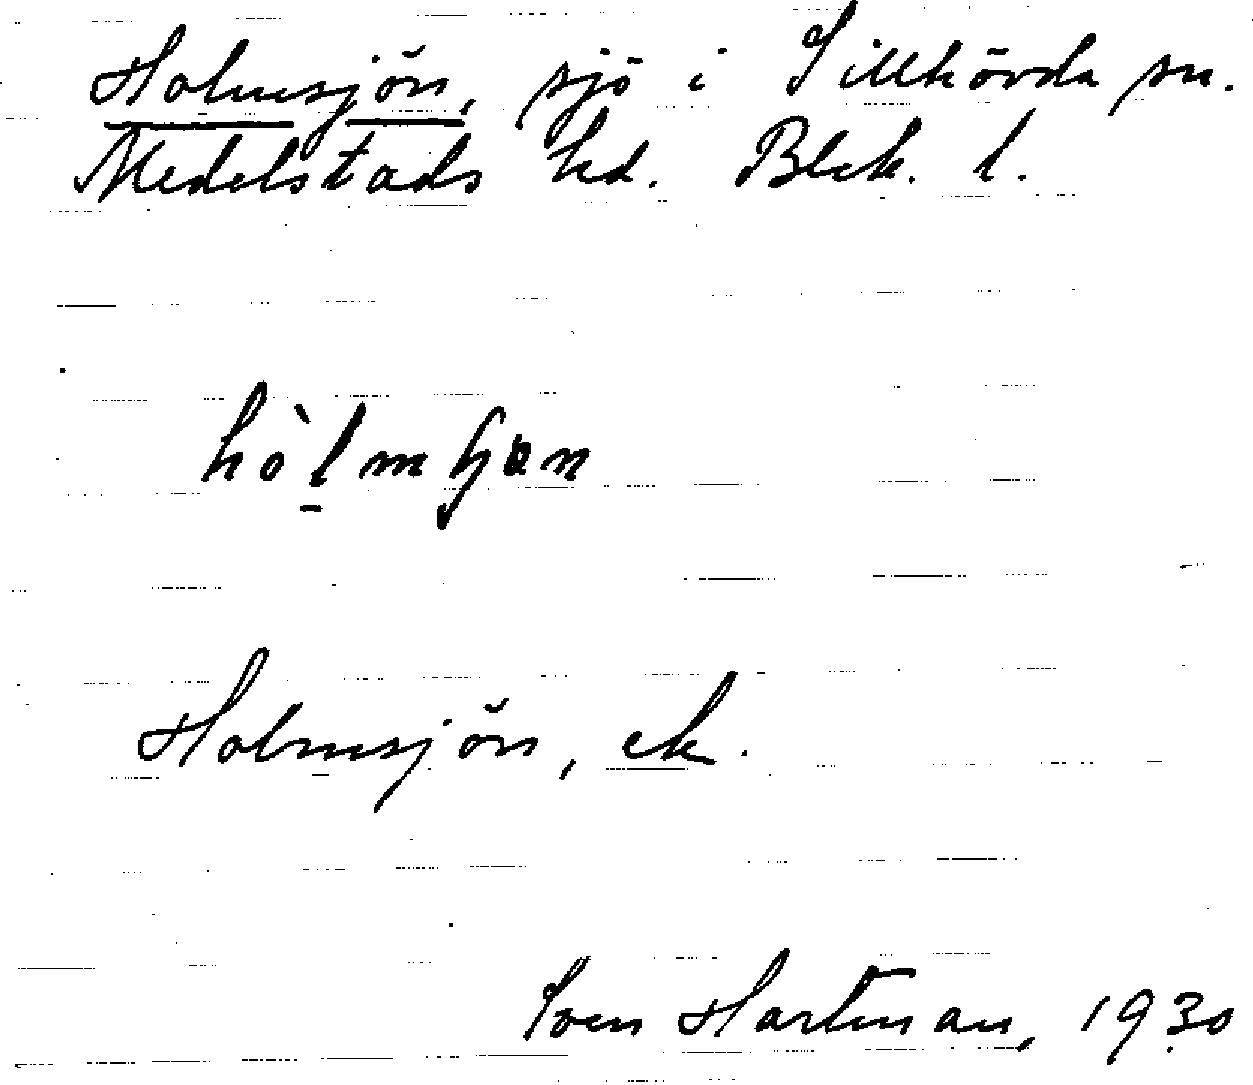 Holmsjön, sjö i Sillhövda sn.
Medelstads hd. Blek. l.
Holmsjön, ek.
Sven Hartman, 1930